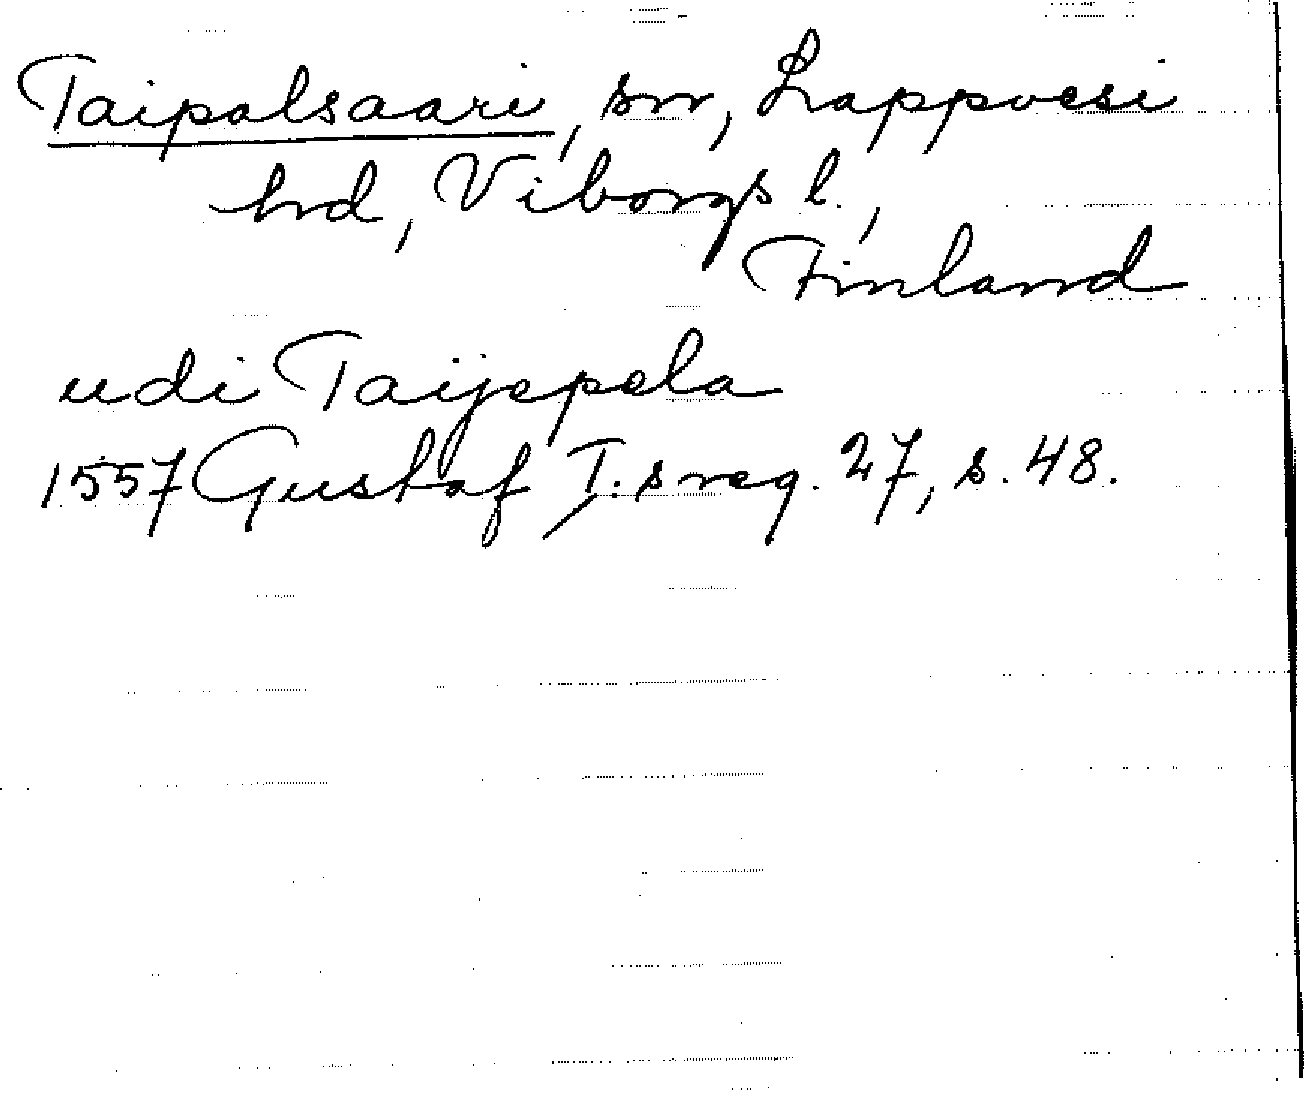 Taipalsaari, sn, Lappvesi
hrd, Viborgs l.,
Finland
udi Taijepela
1557 Gustaf I:s reg. 27, s. 48.